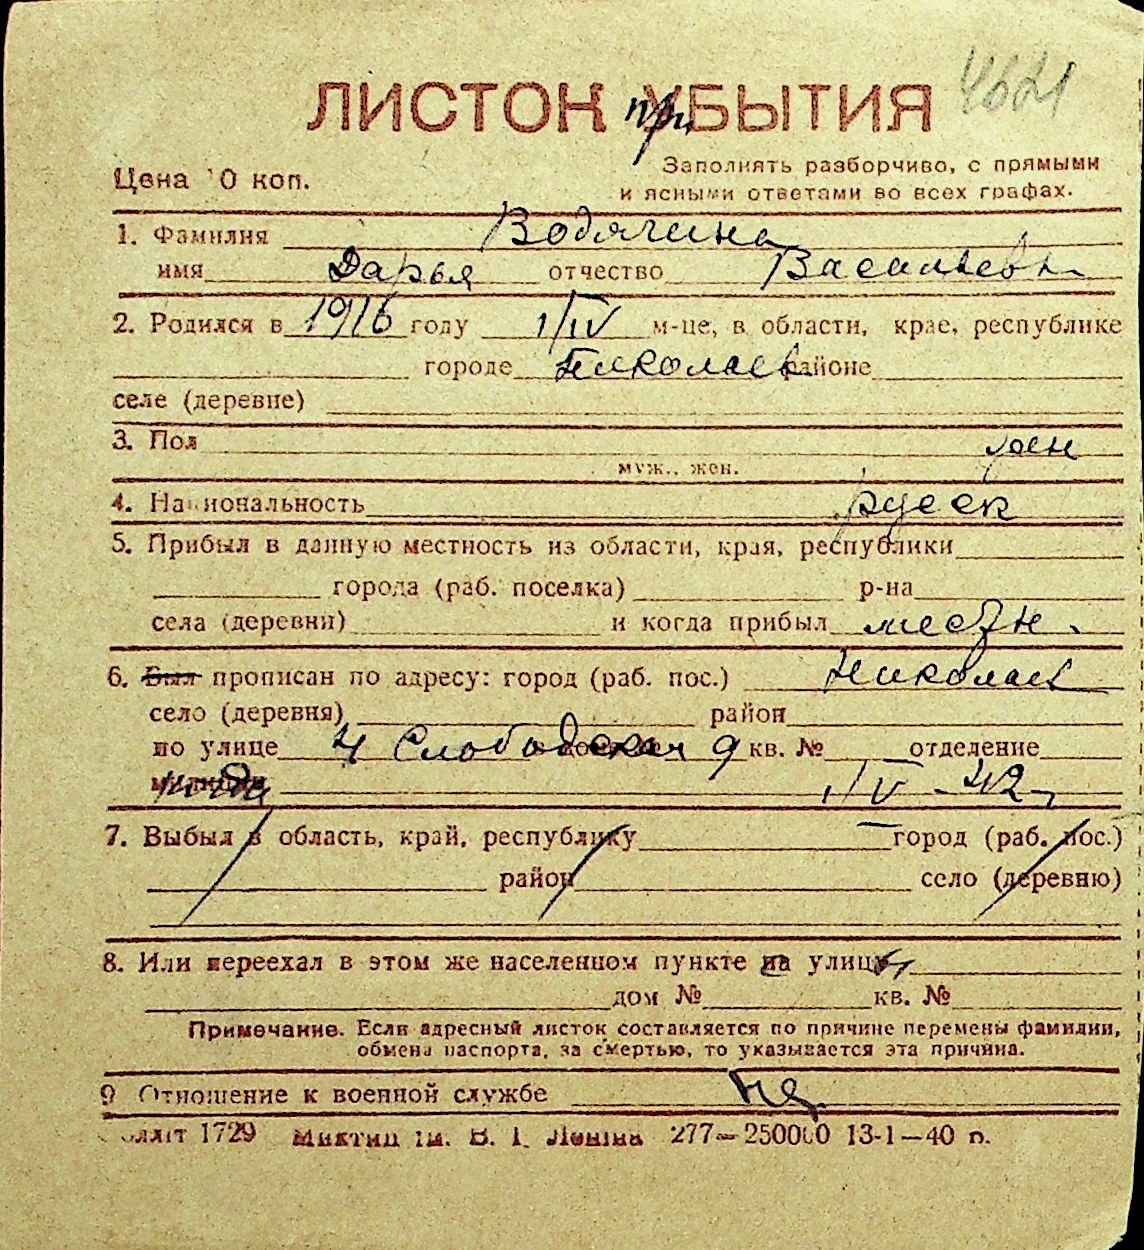 4621
ЛИСТОК при УБЫТИЯ
Цена 10 коп.
Заполнять разборчиво, с прямыми
и ясными ответами во всех графах.
1. Фамилия Водячина
имя Дарья отчество Васильевн
2. Родился в 1916 году 1/IV м-це, в области, крае, республике
городе Николаев районе
селе (деревне)
3. Пол жен
муж., жен.
4. Национальность русск
5. Прибыл в данную местность из области, края, республики
города (раб. поселка) р-на
села (деревни) и когда прибыл местн.
6. Был прописан по адресу: город (раб. пос.) Николаев
село (деревня) район
по улице 4 Слободская 9 кв. № отделение
милиции 1/IV-42
7. Выбыл в область, край, республику город (раб. пос.)
район село (деревню)
8. Или переехал в этом же населенном пункте на улицу
дом № кв. №
Примечание. Если адресный листок составляется по причине перемены фамилии,
обмена паспорта, за смертью, то указывается эта причина.
9 Отношение к военной службе
1729 Миктип Ім. В. І. Леніна 277—250000 13-1—40 р.